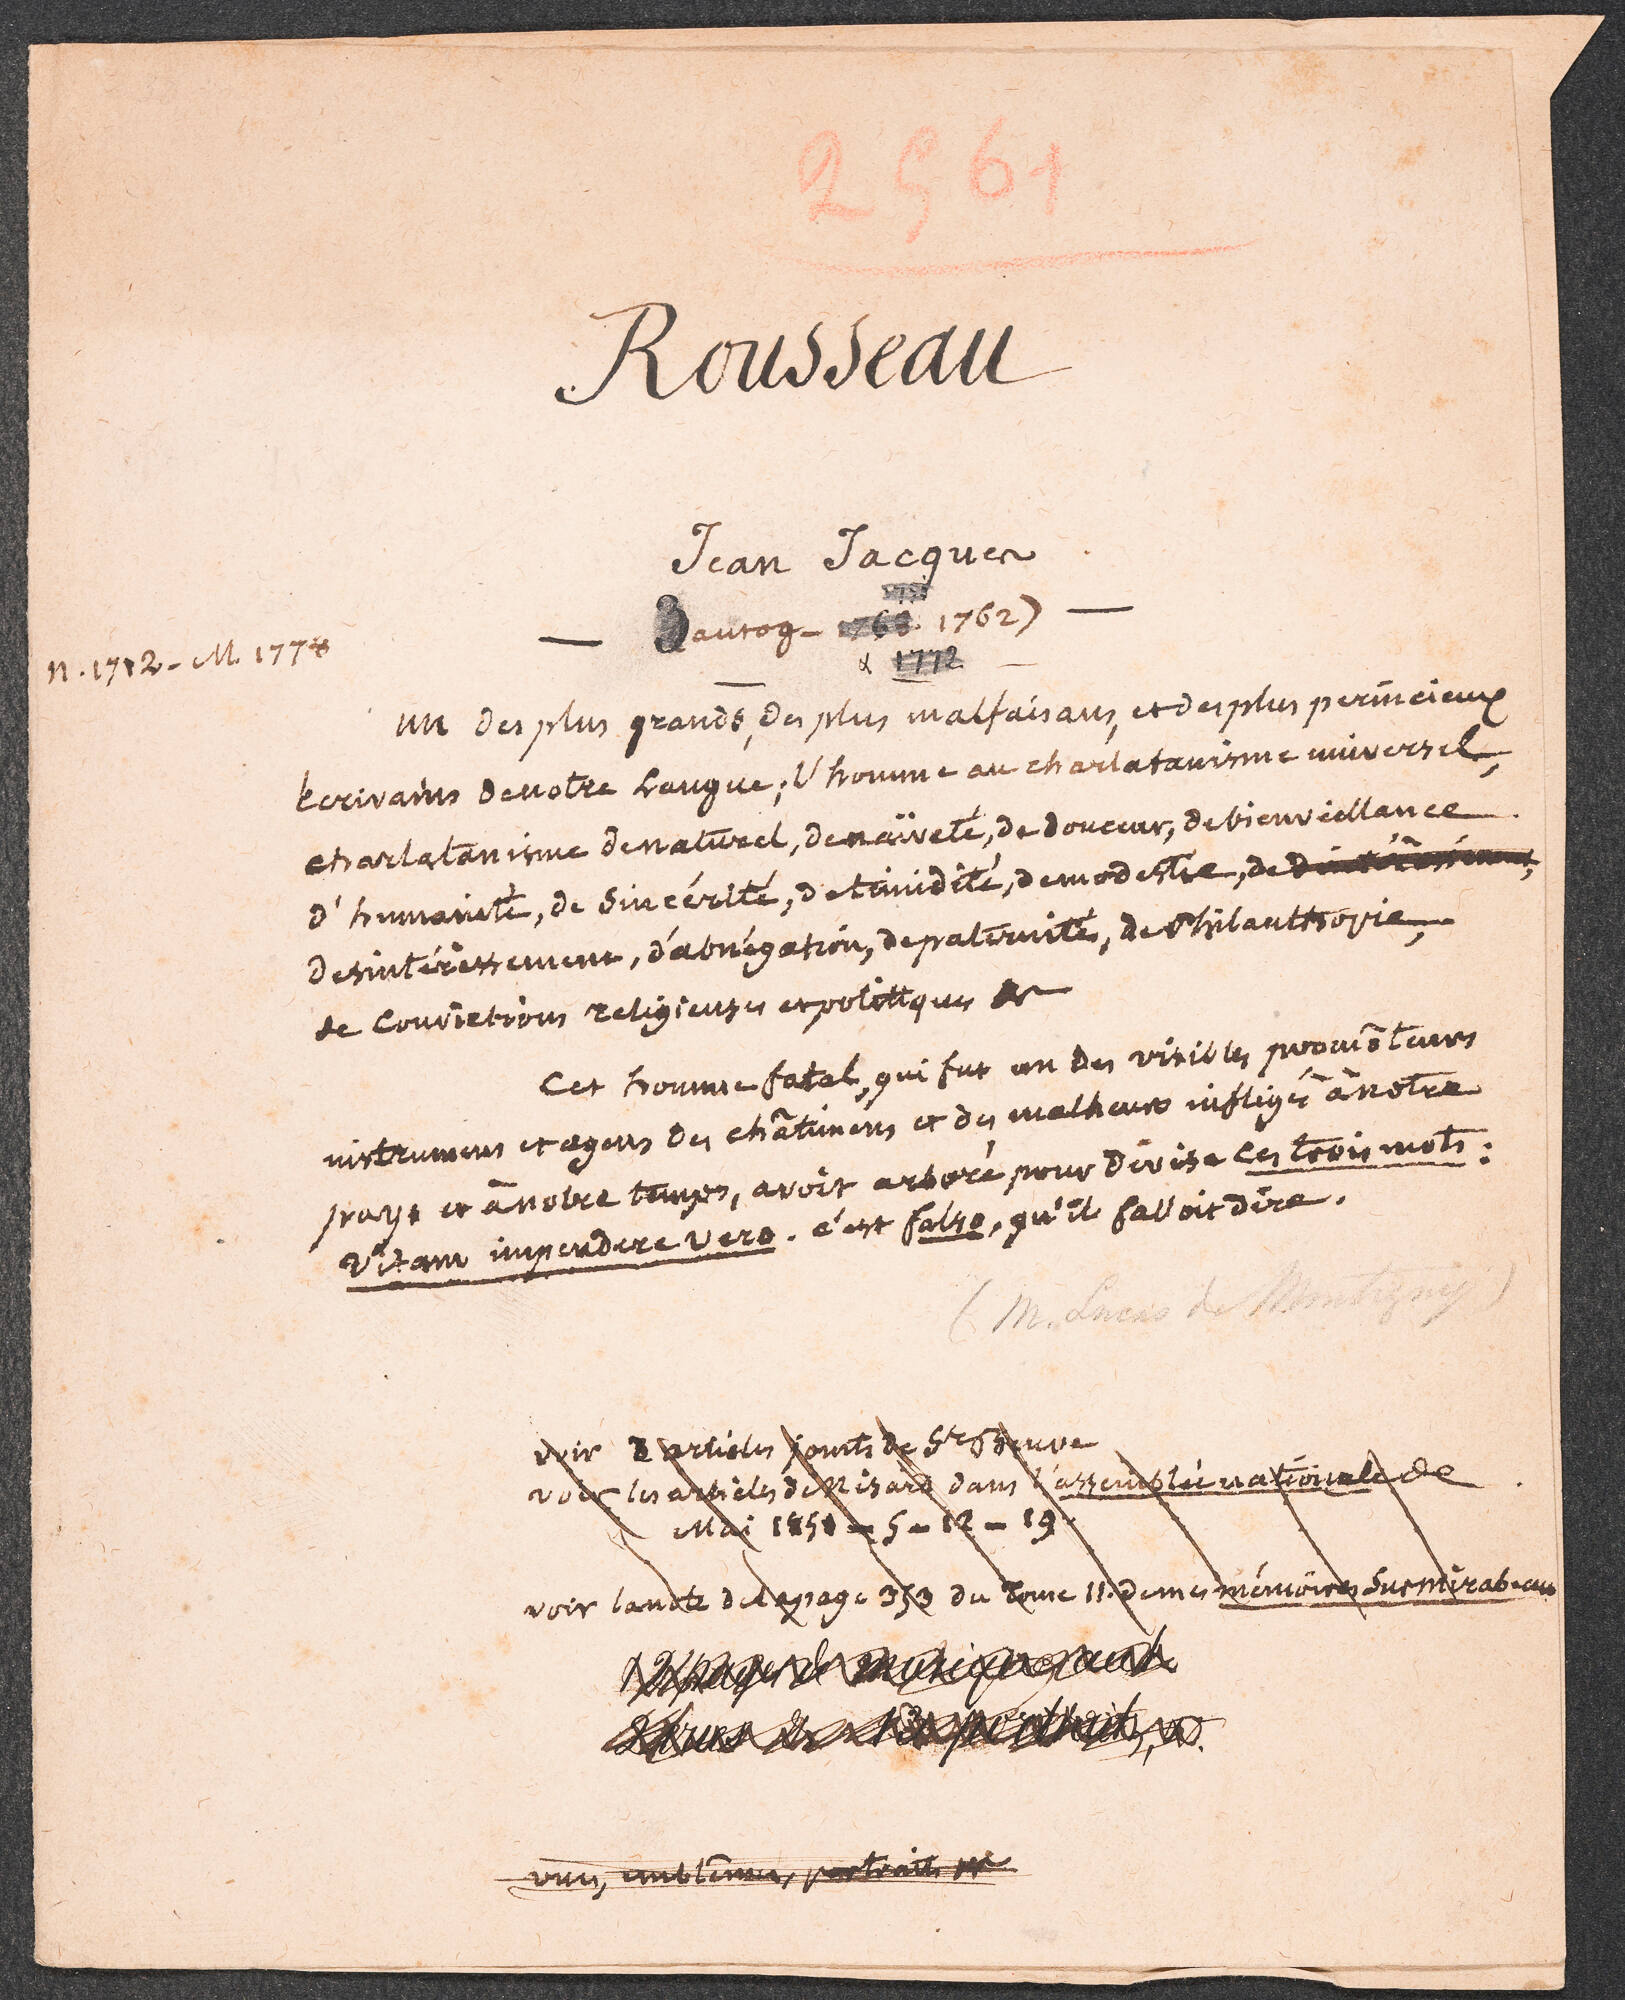 2561
Rousseau
Jean Jacques
— 3 autog — 1768. 1762) —
& 1772
N. 1712 - M. 1778
un des plus grands, des plus malfaisans, et des plus pernicieux
Ecrivains de notre Langue; l'homme au charlatanisme universel,
charlatanisme de naturel, de naïveté, de douceur, de bienveillance
d'humanité, de Sincérité, de timidité, de modestie, de désintéressement,
desintéressement, d'abnégation, de paternité, de Philanthropie,
de Convictions religieuses et politiques &
Cet homme fatal, qui fut un des visibles promôteurs
instrumens et agens des châtimens et des malheurs infligés à notre
pays et à notre temps, avoit arboré pour divise ces trois mots :
Vitam impendere vero. c'est falso, qu'il falloit dire.
(M. Lucas de Montigny)
voir 2 articles joints de Ste Beuve
voir les articles de Nisard dans l'assemblée nationale de
Mai 1851 - 5 - 12 - 19.
voir la note de la page 353 du Tome II. de mes mémoires Sur mirabeau
12 pages de musique
portraits,
vues, emblêmes, portraits &